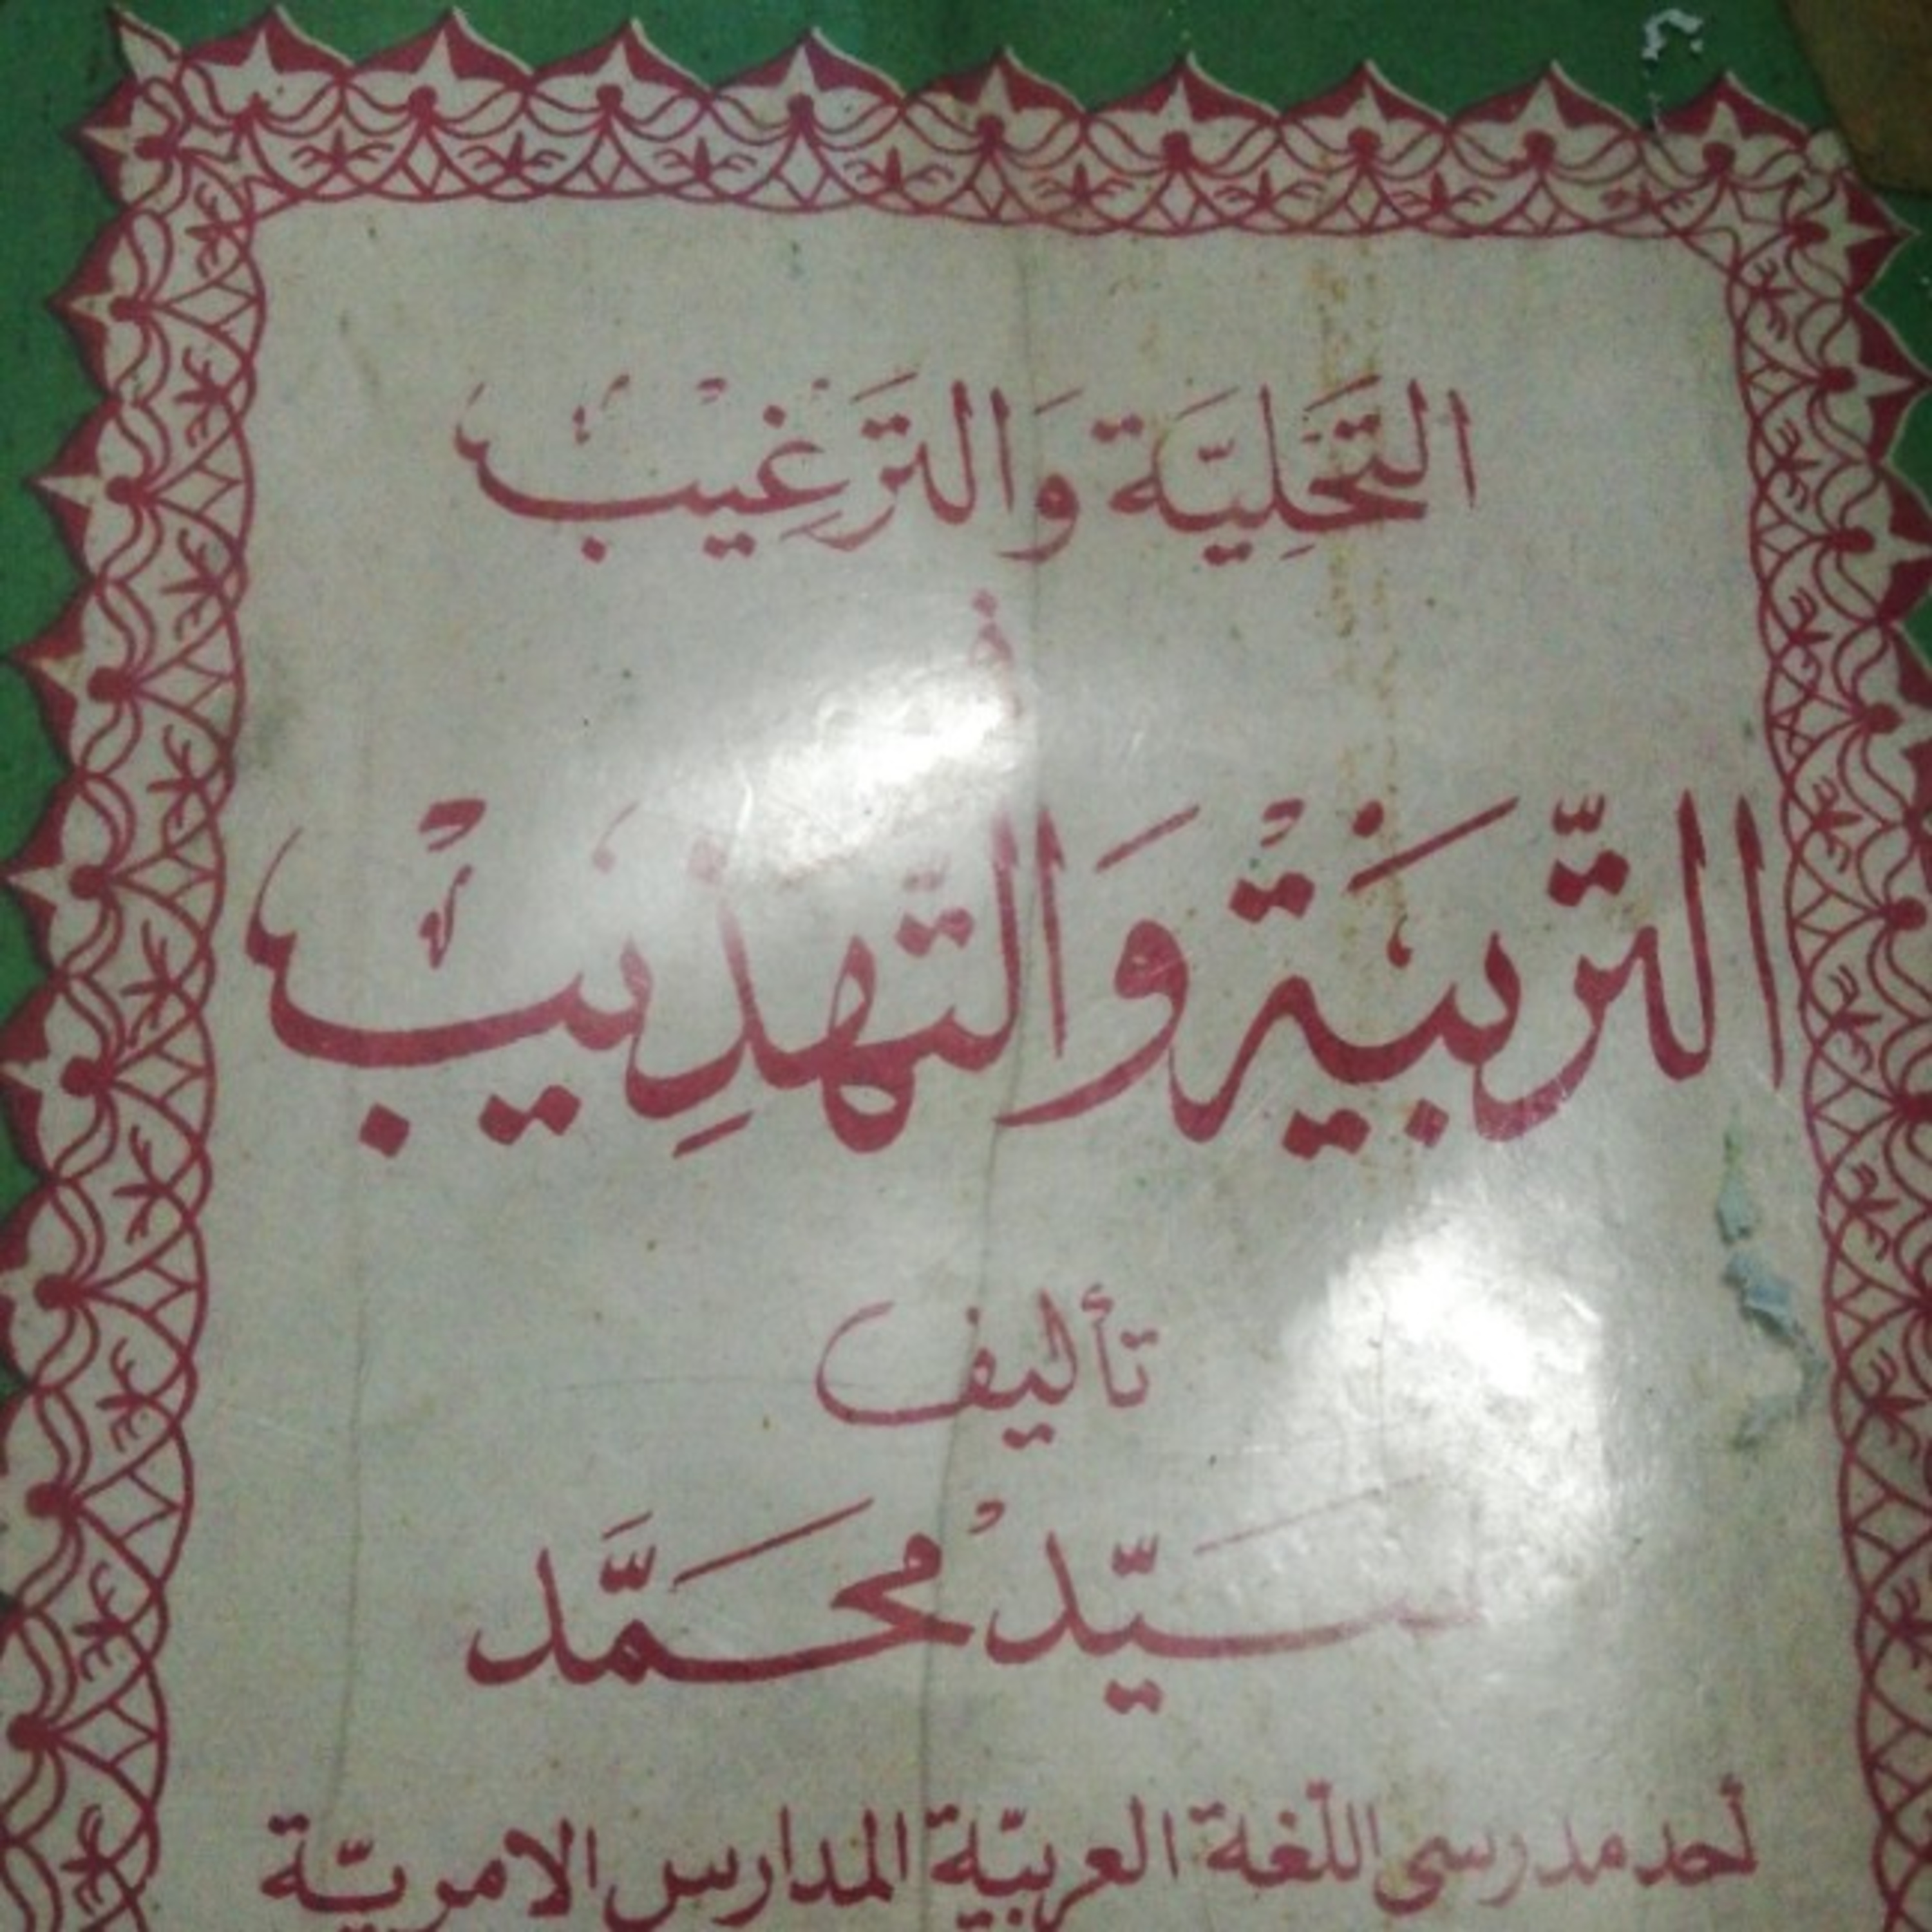 التَّحْلِيَّة وَالتَّرْغِيْبُ
فى
التَّرْبَيَةْ وَالتَّهْذِيْبُ
تأليف
سَيِّدْ مُحَمَّد
أحد مدرسى اللّغة العربيّة المدارس الامريّة